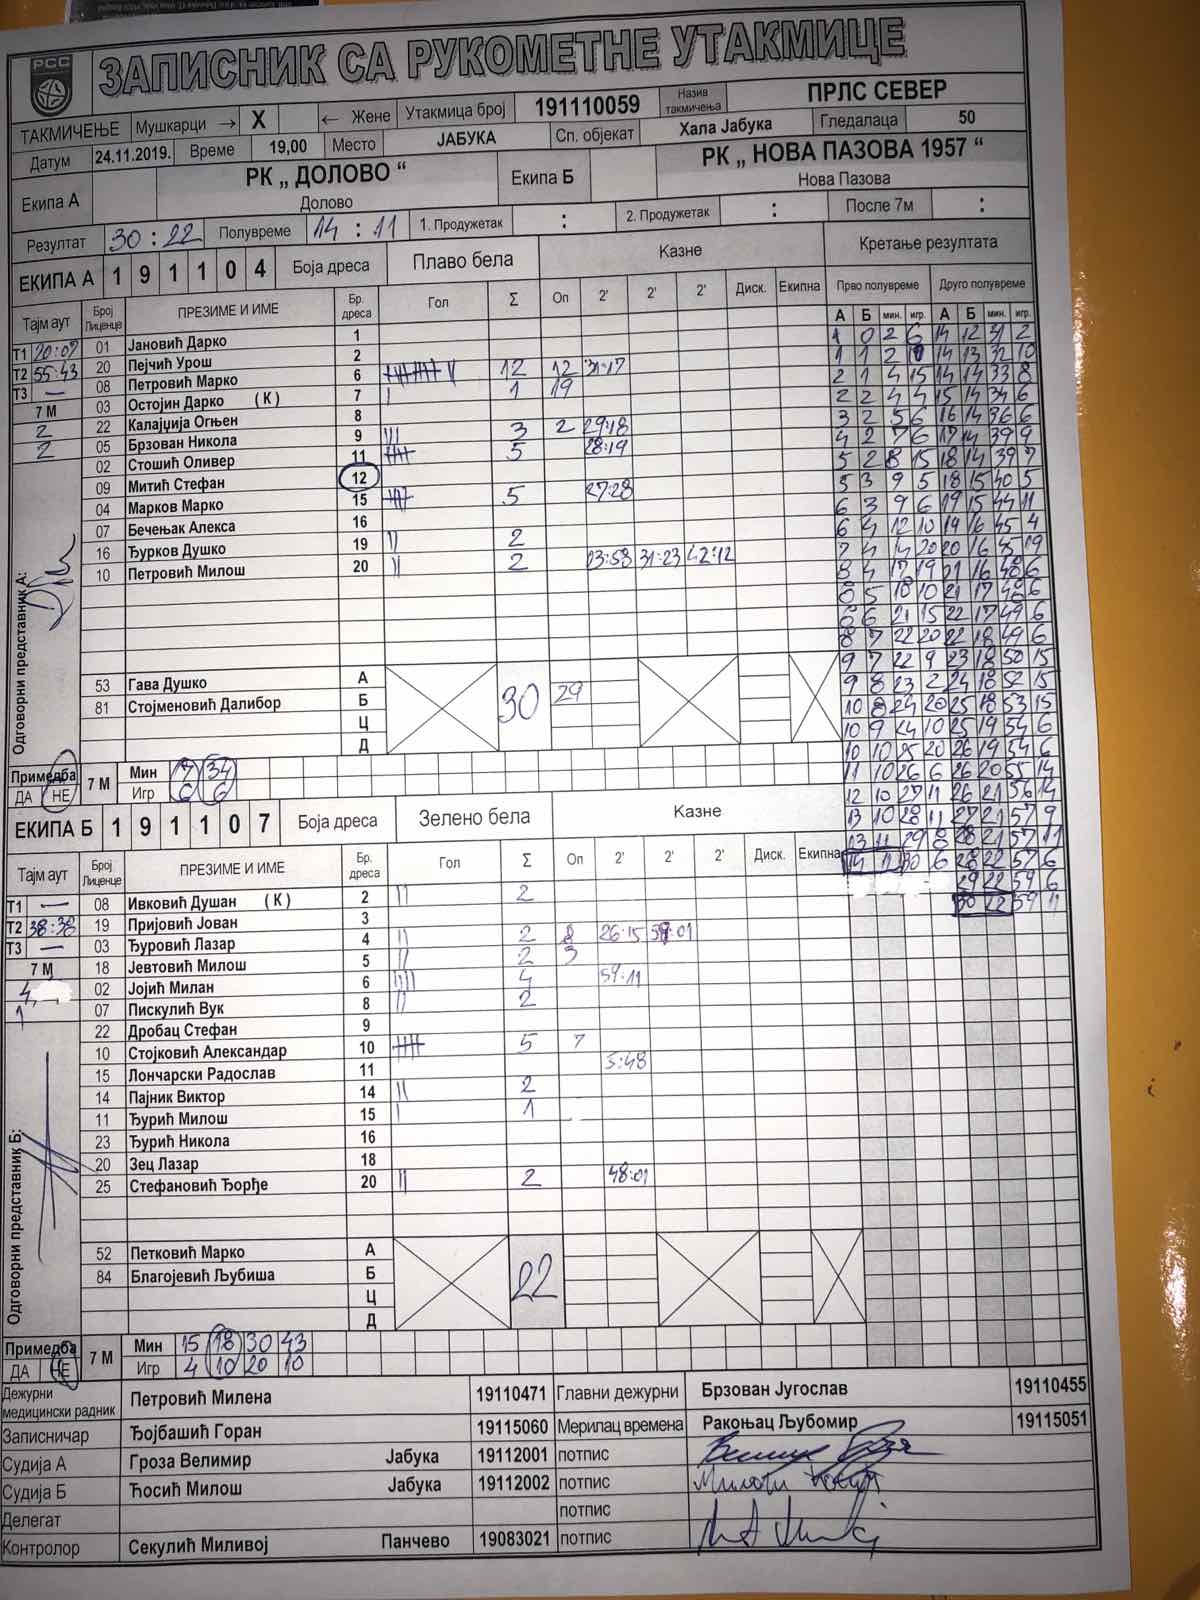 РСС
ЗАПИСНИК СА РУКОМЕТНЕ УТАКМИЦЕ
ТАКМИЧЕЊЕ Мушкарци → X ← Жене Утакмица број 191110059 Назив такмичења ПРЛС СЕВЕР
Датум 24.11.2019. Време 19,00 Место ЈАБУКА Сп. објекат Хала Јабука Гледалаца 50
Екипа А РК „ ДОЛОВО “ Долово Екипа Б РК „ НОВА ПАЗОВА 1957 “ Нова Пазова
Резултат 30 : 22 Полувреме 14 : 11 1. Продужетак : 2. Продужетак : После 7м :
ЕКИПА А 1 9 1 1 0 4 Боја дреса Плаво бела Казне Кретање резултата
Прво полувреме Друго полувреме
Тајм аут Број Лиценце ПРЕЗИМЕ И ИМЕ Бр. дреса Гол Σ Оп 2' 2' 2' Диск. Екипна А Б мин. игр. А Б мин. игр.
Т1 20:07 01 Јановић Дарко 1
Т2 55:43 20 Пејчић Урош 2
Т3 — 08 Петровић Марко 6 12 12 31:17
7 М 03 Остојин Дарко ( К ) 7 1 19
2 22 Калајџија Огњен 8
2 05 Брзован Никола 9 3 2 29:18
02 Стошић Оливер 11 5 28:19
09 Митић Стефан 12
04 Марков Марко 15 5 27:28
07 Бечењак Алекса 16
16 Ђурков Душко 19 2
10 Петровић Милош 20 2 23:53 31:23 42:12
Одговорни представник А:
53 Гава Душко А
81 Стојменовић Далибор Б 30 29
Ц
Д
Примедба ДА НЕ 7 М Мин 7 34
Игр 6 6
1 0 2 6 14 12 31 2
1 1 2 10 14 13 32 10
2 1 4 15 14 14 33 8
2 2 4 4 15 14 34 6
3 2 5 6 16 14 36 6
4 2 7 6 17 14 39 9
5 2 8 15 18 14 39 7
5 3 9 5 18 15 40 5
6 3 9 6 19 15 44 11
6 4 12 10 19 16 45 4
7 4 14 20 20 16 45 19
8 4 17 19 21 16 48 6
5 18 10 21 17 48 6
6 21 15 22 17 49 6
8 7 22 20 22 18 49 6
9 7 22 9 23 18 50 15
9 8 23 2 24 18 52 15
10 8 24 20 25 18 53 15
10 9 24 10 25 19 54 6
10 10 25 20 26 19 54 6
11 10 26 6 26 20 55 14
12 10 27 11 26 21 56 14
13 10 28 11 27 21 57 9
13 11 29 8 28 21 57 11
14 11 30 6 28 22 57 6
29 22 59 6
30 22 59 11
ЕКИПА Б 1 9 1 1 0 7 Боја дреса Зелено бела Казне
Тајм аут Број Лиценце ПРЕЗИМЕ И ИМЕ Бр. дреса Гол Σ Оп 2' 2' 2' Диск. Екипна
Т1 — 08 Ивковић Душан ( К ) 2 2
Т2 38:38 19 Пријовић Јован 3
Т3 — 03 Ђуровић Лазар 4 2 8 26:15
7 М 18 Јевтовић Милош 5 2 3
4, 02 Јојић Милан 6 4 59:11
1 07 Пискулић Вук 8 2
22 Дробац Стефан 9
10 Стојковић Александар 10 5 7
15 Лончарски Радослав 11 5:48
14 Пајник Виктор 14 2
11 Ђурић Милош 15 1
23 Ђурић Никола 16
20 Зец Лазар 18
25 Стефановић Ђорђе 20 2 48:01
Одговорни представник Б:
52 Петковић Марко А
84 Благојевић Љубиша Б 22
Ц
Д
Примедба ДА НЕ 7 М Мин 15 18 30 43
Игр 4 10 20 10
Дежурни медицински радник Петровић Милена 19110471 Главни дежурни Брзован Југослав 19110455
Записничар Ђојбашић Горан 19115060 Мерилац времена Ракоњац Љубомир 19115051
Судија А Гроза Велимир Јабука 19112001 потпис
Судија Б Ћосић Милош Јабука 19112002 потпис
Делегат потпис
Контролор Секулић Миливој Панчево 19083021 потпис